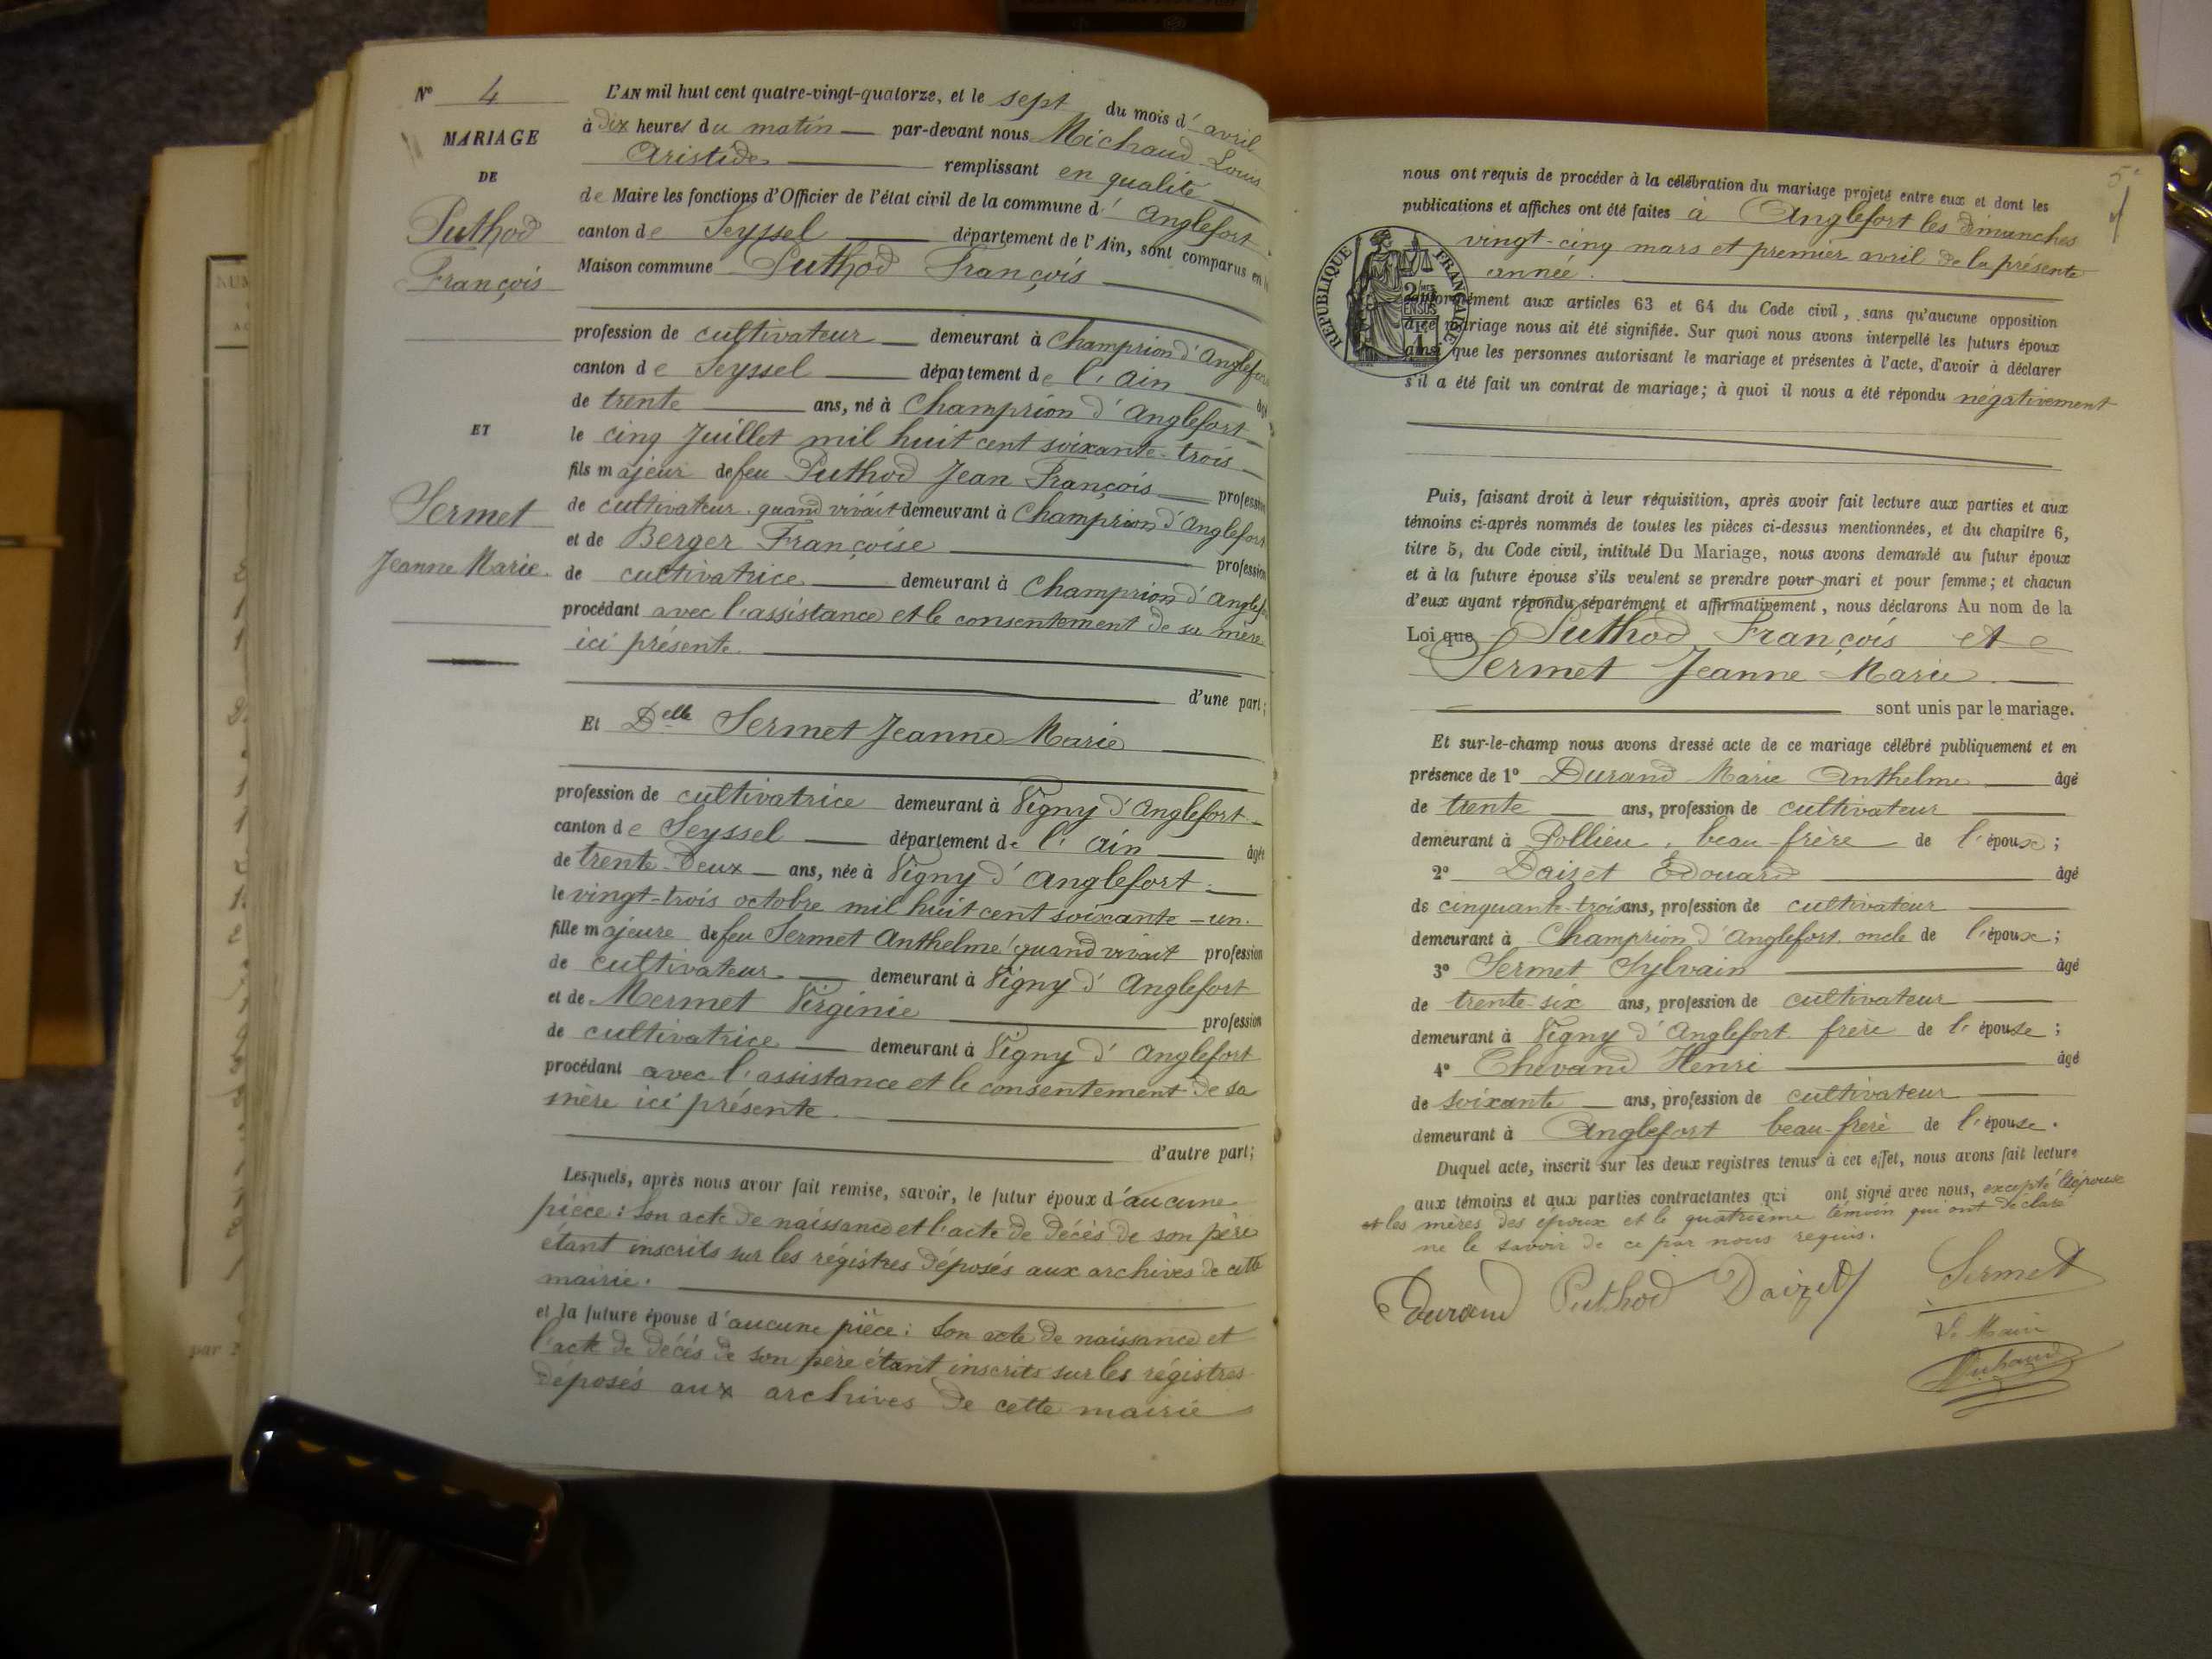 N° 4
MARIAGE
DE
Puthod
François
ET
Sermet
Jeanne Marie.
L'AN mil huit cent quatre-vingt-quatorze, et le sept du mois d'avril
à dix heures du matin par-devant nous Michaud Louis
Aristide remplissant en qualité
de Maire les fonctions d'Officier de l'état civil de la commune d'Anglefort
canton de Seyssel département de l'Ain, sont comparus en la
Maison commune Puthod François
profession de cultivateur demeurant à Champrion d'Anglefort
canton de Seyssel département de l'Ain âgé
de trente ans, né à Champrion d'Anglefort
le cinq Juillet mil huit cent soixante-trois
fils majeur de feu Puthod Jean François profession
de cultivateur quand vivait demeurant à Champrion d'Anglefort
et de Berger Françoise profession
de cultivatrice demeurant à Champrion d'Anglefort
procédant avec l'assistance et le consentement de sa mère
ici présente.
d'une part;
Et Delle Sermet Jeanne Marie
profession de cultivatrice demeurant à Vigny d'Anglefort
canton de Seyssel département de l'Ain âgée
de trente-deux ans, née à Vigny d'Anglefort
le vingt-trois octobre mil huit cent soixante-un.
fille majeure de feu Sermet Anthelme quand vivait profession
de cultivateur demeurant à Vigny d'Anglefort
et de Mermet Virginie profession
de cultivatrice demeurant à Vigny d'Anglefort
procédant avec l'assistance et le consentement de sa
mère ici présente.
d'autre part;
Lesquels, après nous avoir fait remise, savoir, le futur époux d'aucune
pièce: Son acte de naissance et l'acte de décès de son père
étant inscrits sur les régistres déposés aux archives de cette
mairie.
et la future épouse d'aucune pièce: Son acte de naissance et
l'acte de décès de son père étant inscrits sur les régistres
déposés aux archives de cette mairie
par
5
nous ont requis de procéder à la célébration du mariage projeté entre eux et dont les
publications et affiches ont été faites à Anglefort les dimanches
vingt-cinq mars et premier avril de la présente
année.
RÉPUBLIQUE FRANÇAISE
conformément aux articles 63 et 64 du Code civil, sans qu'aucune opposition
à ce mariage nous ait été signifiée. Sur quoi nous avons interpellé les futurs époux
ainsi que les personnes autorisant le mariage et présentes à l'acte, d'avoir à déclarer
s'il a été fait un contrat de mariage; à quoi il nous a été répondu négativement
Puis, faisant droit à leur réquisition, après avoir fait lecture aux parties et aux
témoins ci-après nommés de toutes les pièces ci-dessus mentionnées, et du chapitre 6,
titre 5, du Code civil, intitulé Du Mariage, nous avons demandé au futur époux
et à la future épouse s'ils veulent se prendre pour mari et pour femme; et chacun
d'eux ayant répondu séparément et affirmativement, nous déclarons Au nom de la
Loi que Puthod François et
Sermet Jeanne Marie.
sont unis par le mariage.
Et sur-le-champ nous avons dressé acte de ce mariage célébré publiquement et en
présence de 1° Durand Marie Anthelme âgé
de trente ans, profession de cultivateur
demeurant à Pollieu, beau-frère de l'époux;
2° Daizet Edouard âgé
de cinquante-trois ans, profession de cultivateur
demeurant à Champrion d'Anglefort oncle de l'époux;
3° Sermet Sylvain âgé
de trente-six ans, profession de cultivateur
demeurant à Vigny d'Anglefort frère de l'épouse;
4° Chevand Henri âgé
de soixante ans, profession de cultivateur
demeurant à Anglefort beau-frère de l'épouse.
Duquel acte, inscrit sur les deux registres tenus à cet effet, nous avons fait lecture
aux témoins et aux parties contractantes qui ont signé avec nous, excepté l'épouse
et les mères des époux et le quatrième témoin qui ont déclaré
ne le savoir de ce par nous requis.
Durand Puthod Daizet Sermet
Le Maire
Michaud